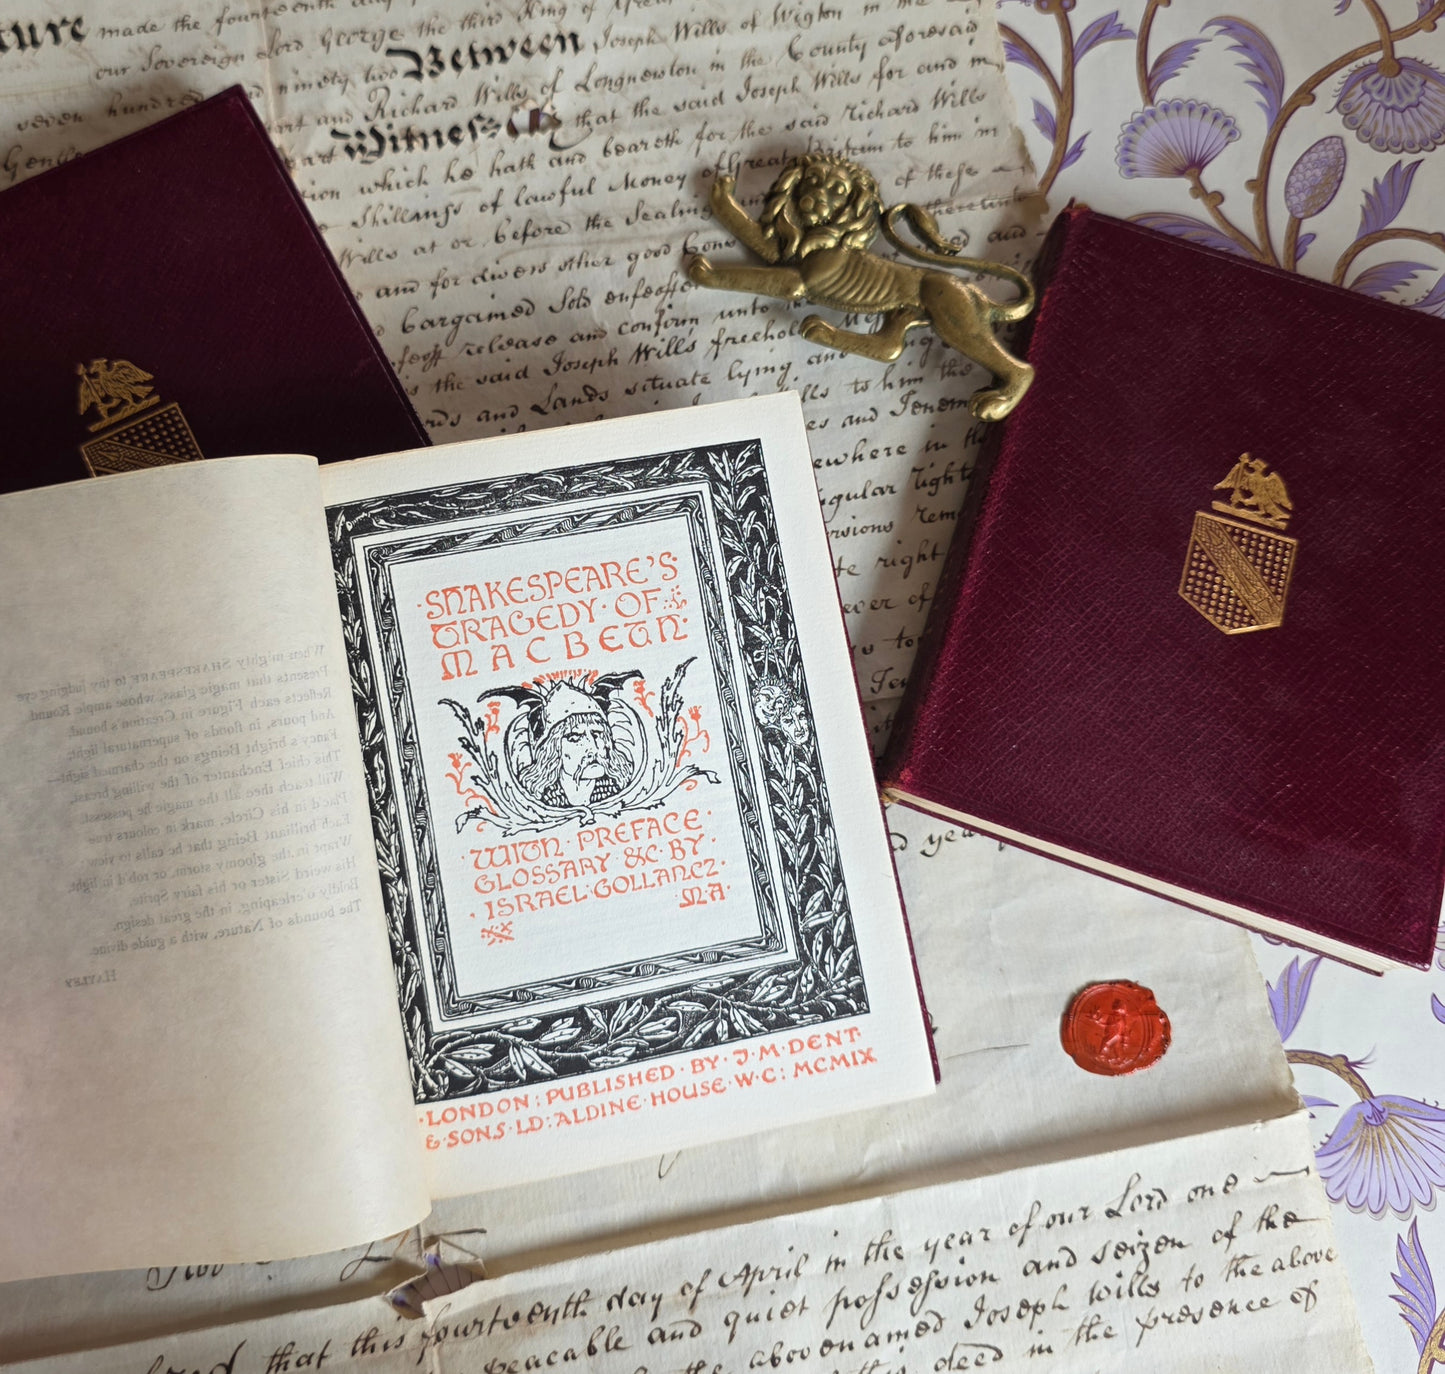 ture made the fourteenth day
our Sovereign Lord George the third King of Great
seven hundred and ninety two Between Joseph Wills of Wigton in the
part and Richard Wills of Longnewton in the County aforesaid
Gentle part Witnesseth that the said Joseph Wills for and in
ion which he hath and beareth for the said Richard Wills
Shillings of lawful Money of Great Britain to him in
Wills at or before the Sealing of these
and for divers other good thereunto
bargained Sold enfeoffed and
feoff release and confirm unto the
is the said Joseph Wills freehold
rds and Lands situate lying and
Wills to him the
es and Tenem
ewhere in the
ngular rights
ersions Rem
te right
ever of
When mighty SHAKESPEARE to thy judging eye
Presents that magic glass, whose ample Round
Reflects each Figure in Creation's bound,
And pours, in floods of supernatural light,
Fancy's bright Beings on the charmed sight—
This chief Enchanter of the willing breast,
Will teach thee all the magic he possess'd.
Plac'd in his Circle, mark in colours true
Each brilliant Being that he calls to view:
Wrapt in the gloomy storm, or rob'd in light,
His weird Sister or his fairy Sprite,
Boldly o'erleaping, in the great design,
The bounds of Nature, with a guide divine.
HAYLEY
·SHAKESPEARE'S·
TRAGEDY·OF
MACBETH·
·WITH·PREFACE·
GLOSSARY·&C·BY·
·ISRAEL·GOLLANCZ·
·M·A·
·LONDON:PUBLISHED·BY·J·M·DENT·
&·SONS·LD:ALDINE·HOUSE·W·C: MCMIX
d year
that this fourteenth day of April in the year of our Lord one
peaceable and quiet possession and seizen of the
the abovenamed Joseph Wills to the above
this deed in the presence of